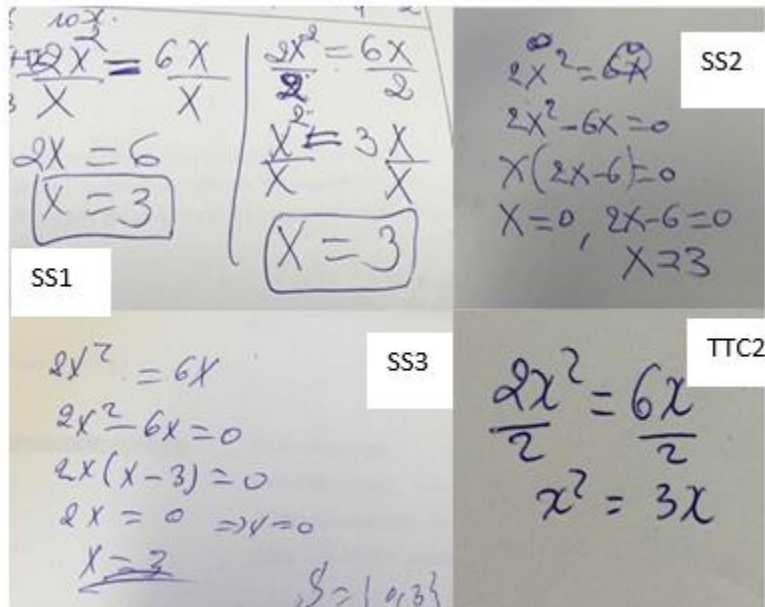 10x.
2x² = 6x
x x
2x = 6
x = 3
2x² = 6x
2 2
x² = 3x
x x
x = 3
SS1
2x² = 6x
2x² - 6x = 0
x(2x-6) = 0
x = 0, 2x-6 = 0
x = 3
SS2
2x² = 6x
2x² - 6x = 0
2x(x-3) = 0
2x = 0 => x = 0
x = 3
S = {0,3}
SS3
2x² = 6x
2 2
x² = 3x
TTC2